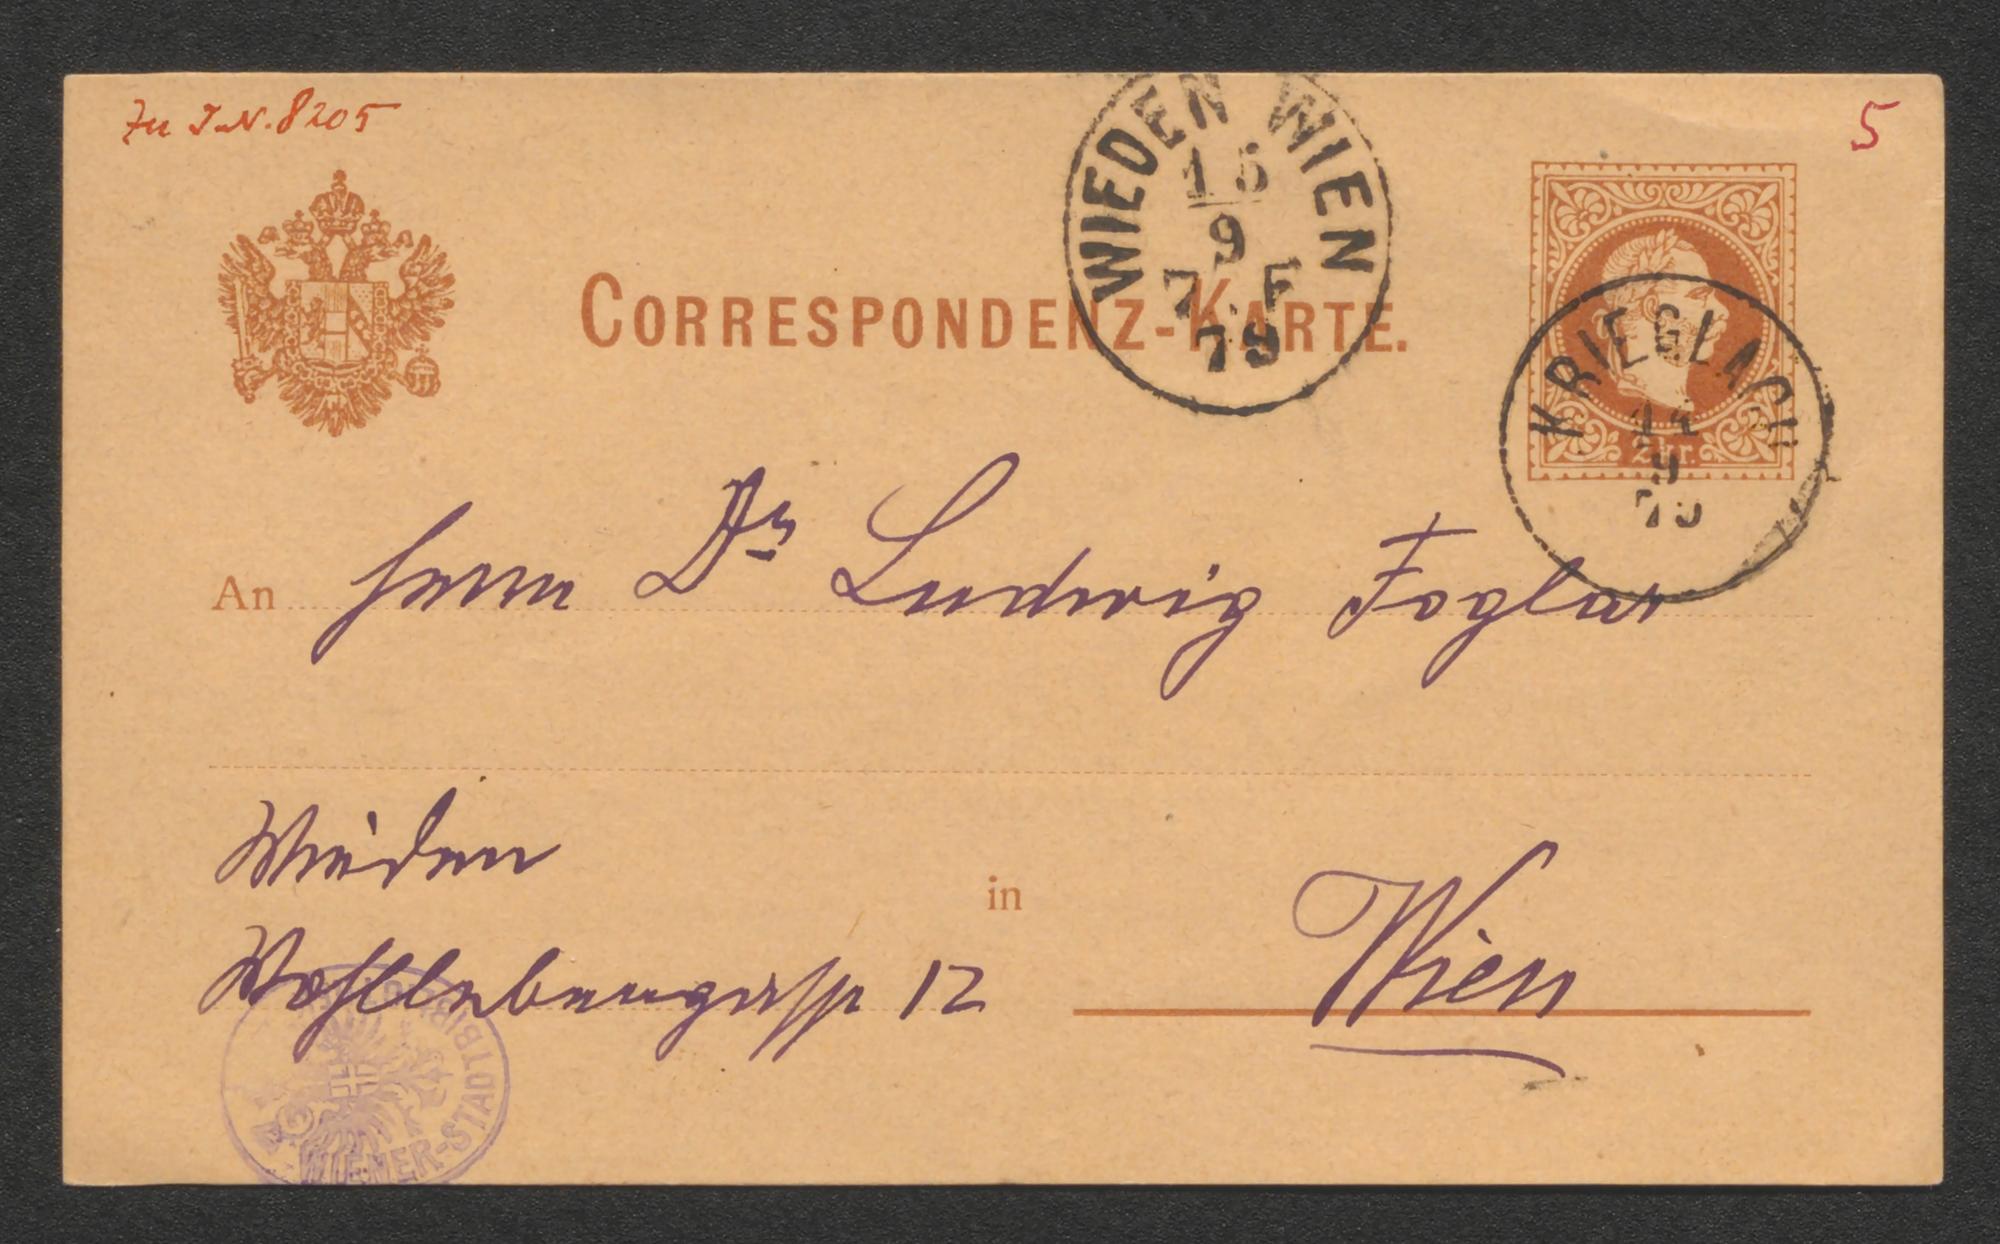 Zu I.N. 8205
5
WIEDEN WIEN
15
9
7. F
79
CORRESPONDENZ-KARTE.
KRIEGLACH
14
9
79
2 kr.
An Herrn Dr Ludwig Foglar
Wieden
in Wien
Wohllebengasse 12
WIENER-STADTBIBLIOTHEK